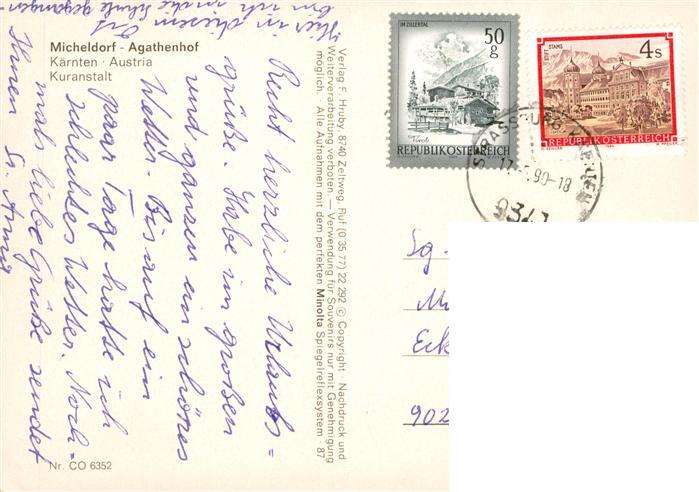 Micheldorf - Agathenhof
Kärnten · Austria
Kuranstalt
Recht herzliche Urlaubs=
grüße. Habe im großen
und ganzen ein schönes
Wetter. Bis auf ein
paar Tage hatte ich
schlechtes Wetter. Noch-
mals liebe Grüße sendet
Ihnen Fr. Anna
Hier in diesem Ort
bin ich in die Schule gegangen
Nr. CO 6352
Verlag F. Hruby, 8740 Zeltweg, Ruf (0 35 77) 22 292 © Copyright Nachdruck und
Weiterverarbeitung verboten. — Verwendung für Souvenirs nur mit Genehmigung
möglich. Alle Aufnahmen mit dem perfekten Minolta Spiegelreflexsystem 87
IM ZILLERTAL
50
g
Tirol
REPUBLIK ÖSTERREICH
STIFT STAMS
4 S
REPUBLIK ÖSTERREICH
STRASSBURG
90-18
934
Sg.
Eck
902